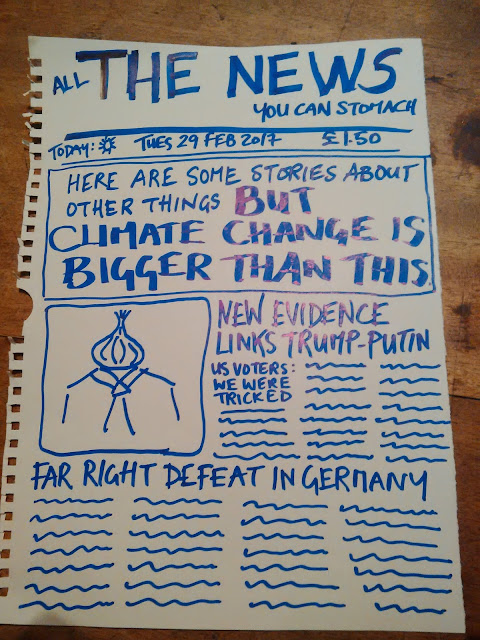 ALL THE NEWS
YOU CAN STOMACH
TODAY: TUES 29 FEB 2017 £1.50
HERE ARE SOME STORIES ABOUT
OTHER THINGS BUT
CLIMATE CHANGE IS
BIGGER THAN THIS.
NEW EVIDENCE
LINKS TRUMP-PUTIN
US VOTERS:
WE WERE
TRICKED
FAR RIGHT DEFEAT IN GERMANY